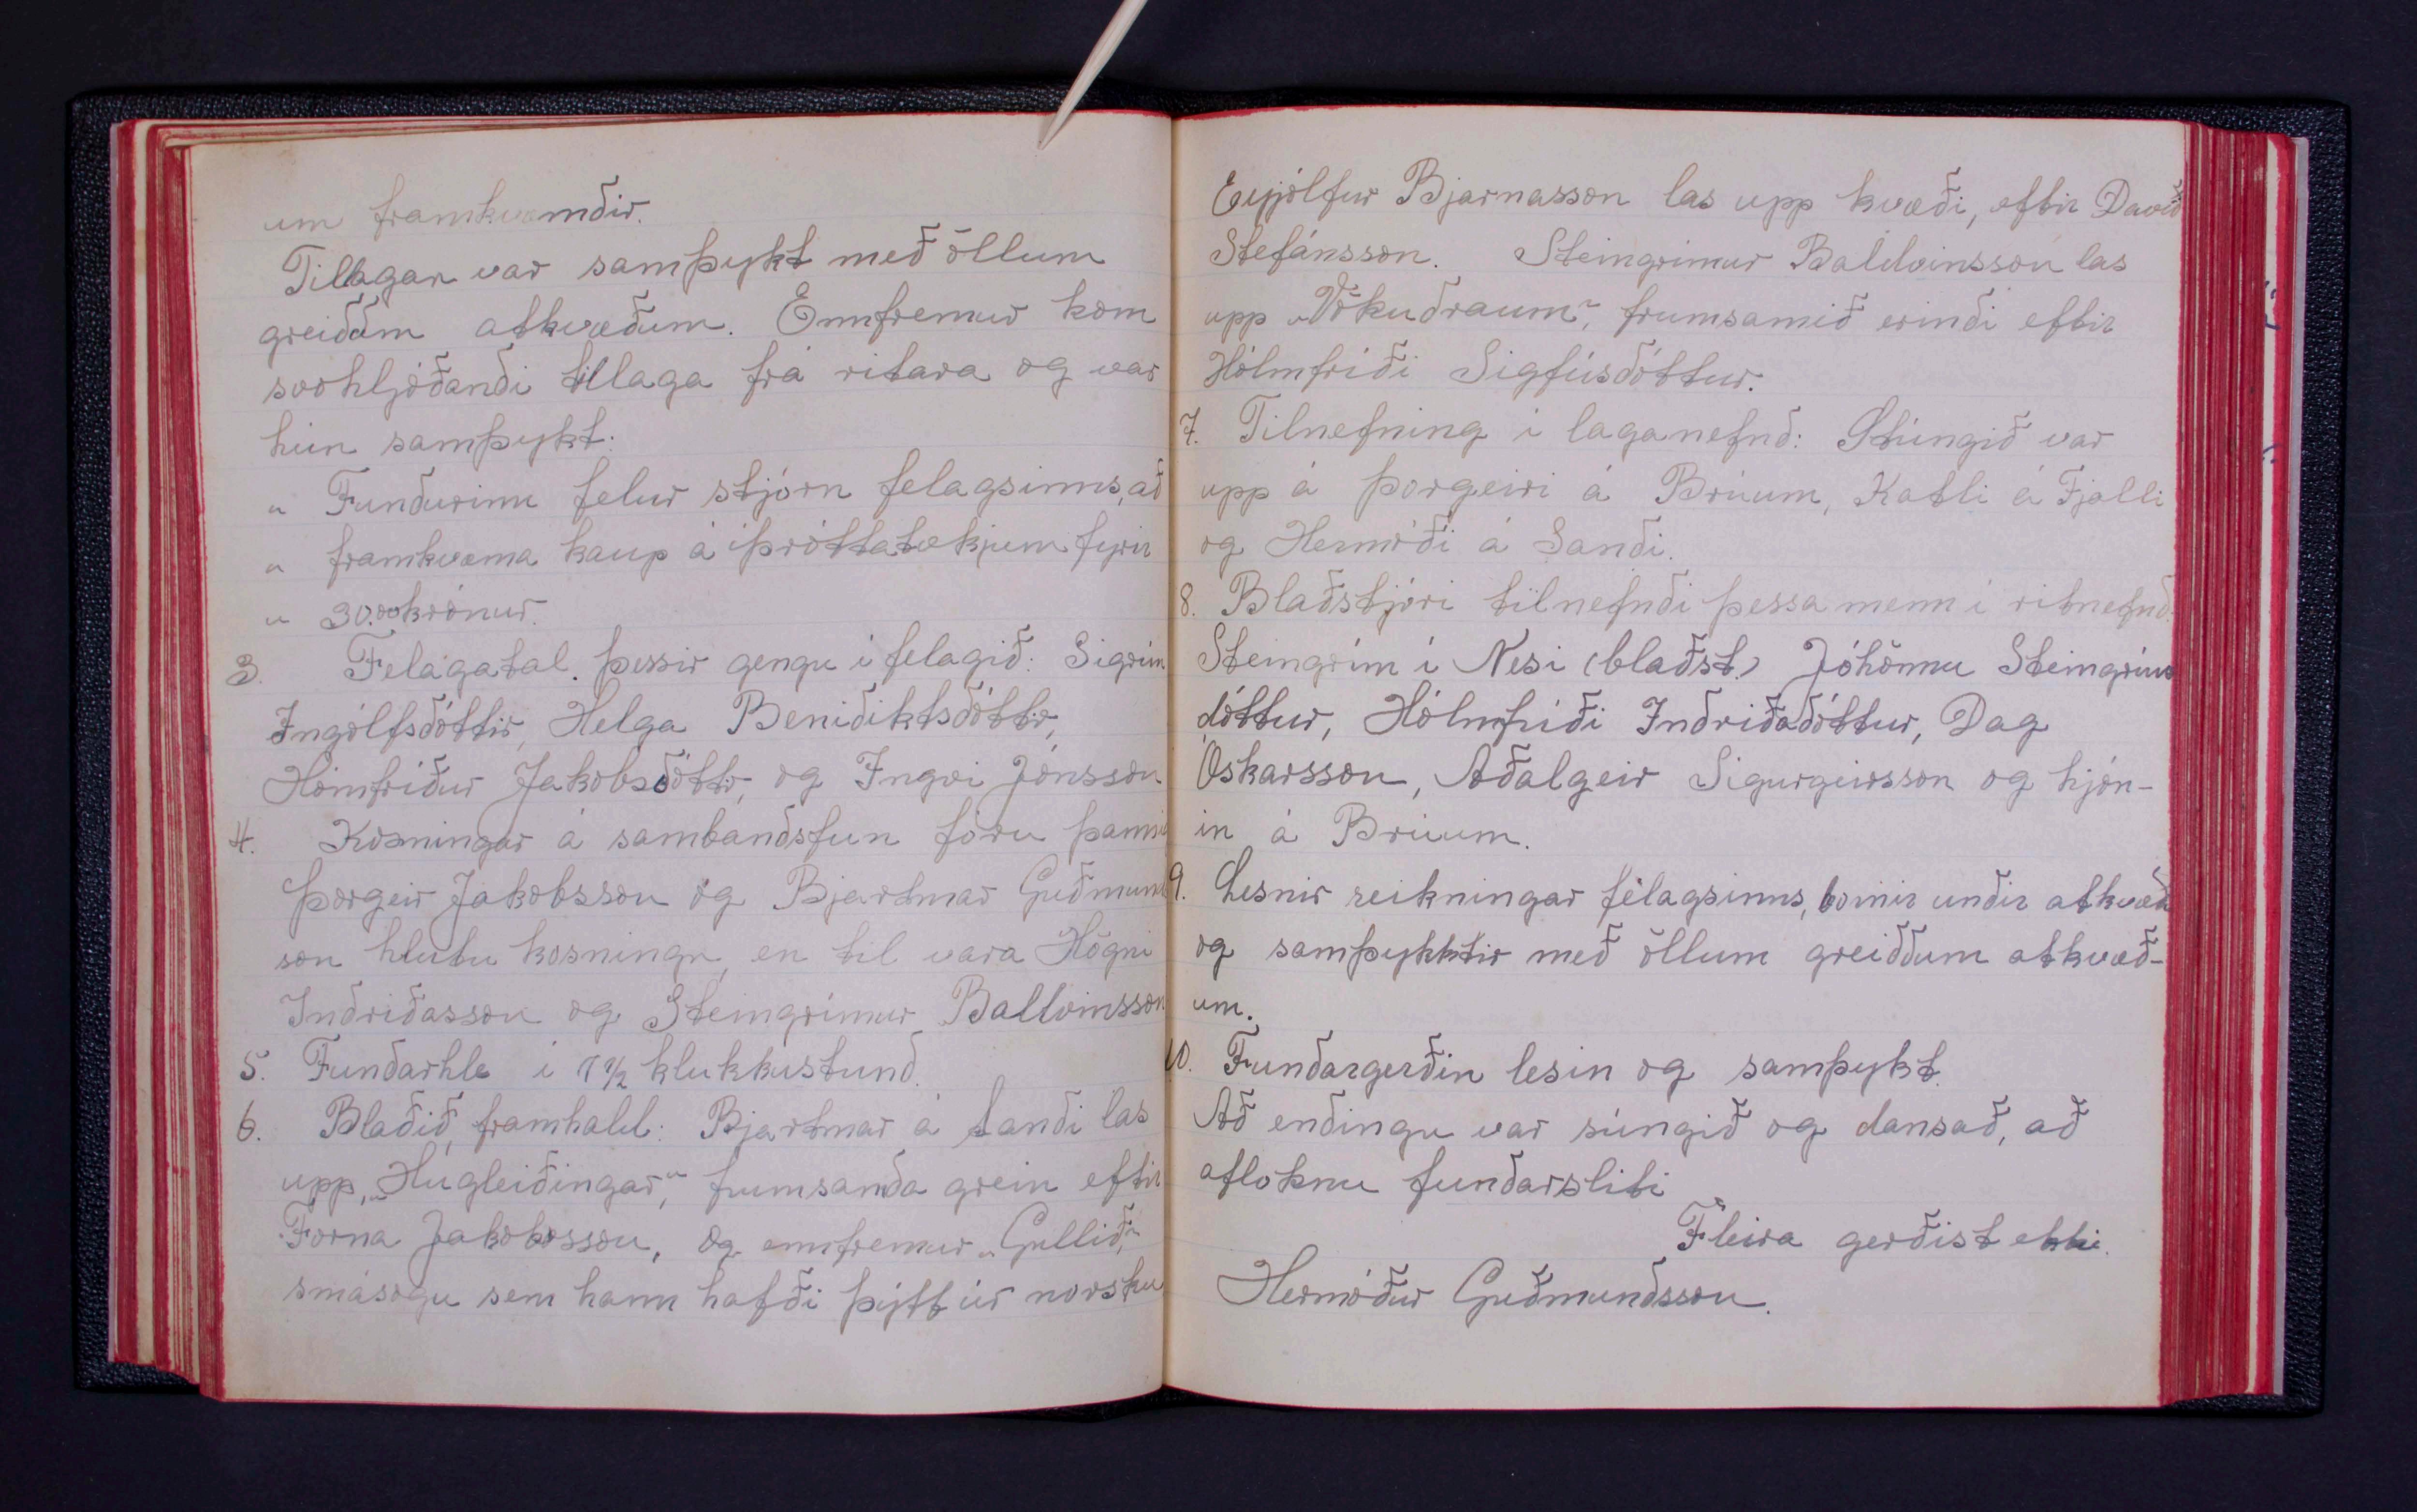 um framkvæmdir.
Tillagan var samþykt með öllum
greiddum atkvæðum. Ennfremur kom
svohljóðandi tillaga frá ritara og var
hún samþykt:
" Fundurinn felur stjórn felagsinns, að
" framkvæma kaup á íþróttatækjum fyrir
" 30.00 krónur.
3. Felagatal. Þessir gengu í felagið: Sigrún
Ingólfsdóttir, Helga Benidiktsdóttir,
Hómfríður Jakobsdóttir, og Ingvi Jónsson.
4. Kosningar á sambandsfun fóru þannig
Þorgeir Jakobsson og Bjartmar Guðmund
son hlutu kosningu, en til vara Högni
Indriðasson og Steingrímur Baldvinsson
5. Fundarhle í 1 1/2 klukkustund.
6. Blaðið, framhald: Bjartmar á Sandi las
upp, „Hugleiðingar", frumsamda grein eftir
Forna Jakobsson, og ennfremur „Gullið,"
smásögu sem hann hafði þýtt úr norsku
Eyjólfur Bjarnasson las upp kvæði, eftir Davíð
Stefánsson. Steingrímur Baldvinsson las
upp „Vökudraum", frumsamið erindi eftir
Hólmfríði Sigfúsdóttur.
7. Tilnefning í laganefnd: Stúngið var
upp á Þorgeiri á Brúum, Katli á Fjalli
og Hermóði á Sandi.
8. Blaðstjóri tilnefndi þessa menn í ritnefnd.
Steingrím í Nesi (blaðst.) Jóhönnu Steingríms
dóttur, Hólmfríði Indriðadóttur, Dag
Óskarsson, Aðalgeir Sigurgeirsson og hjón-
in á Brúum.
9. Lesnir reikningar félagsinns, bornir undir atkvæði
og samþykktir með öllum greiddum atkvæð-
um.
10. Fundargerðin lesin og samþykt.
Að endingu var súngið og dansað, að
afloknu fundarsliti
Fleira gerðist ekki.
Hermóður Guðmundsson.